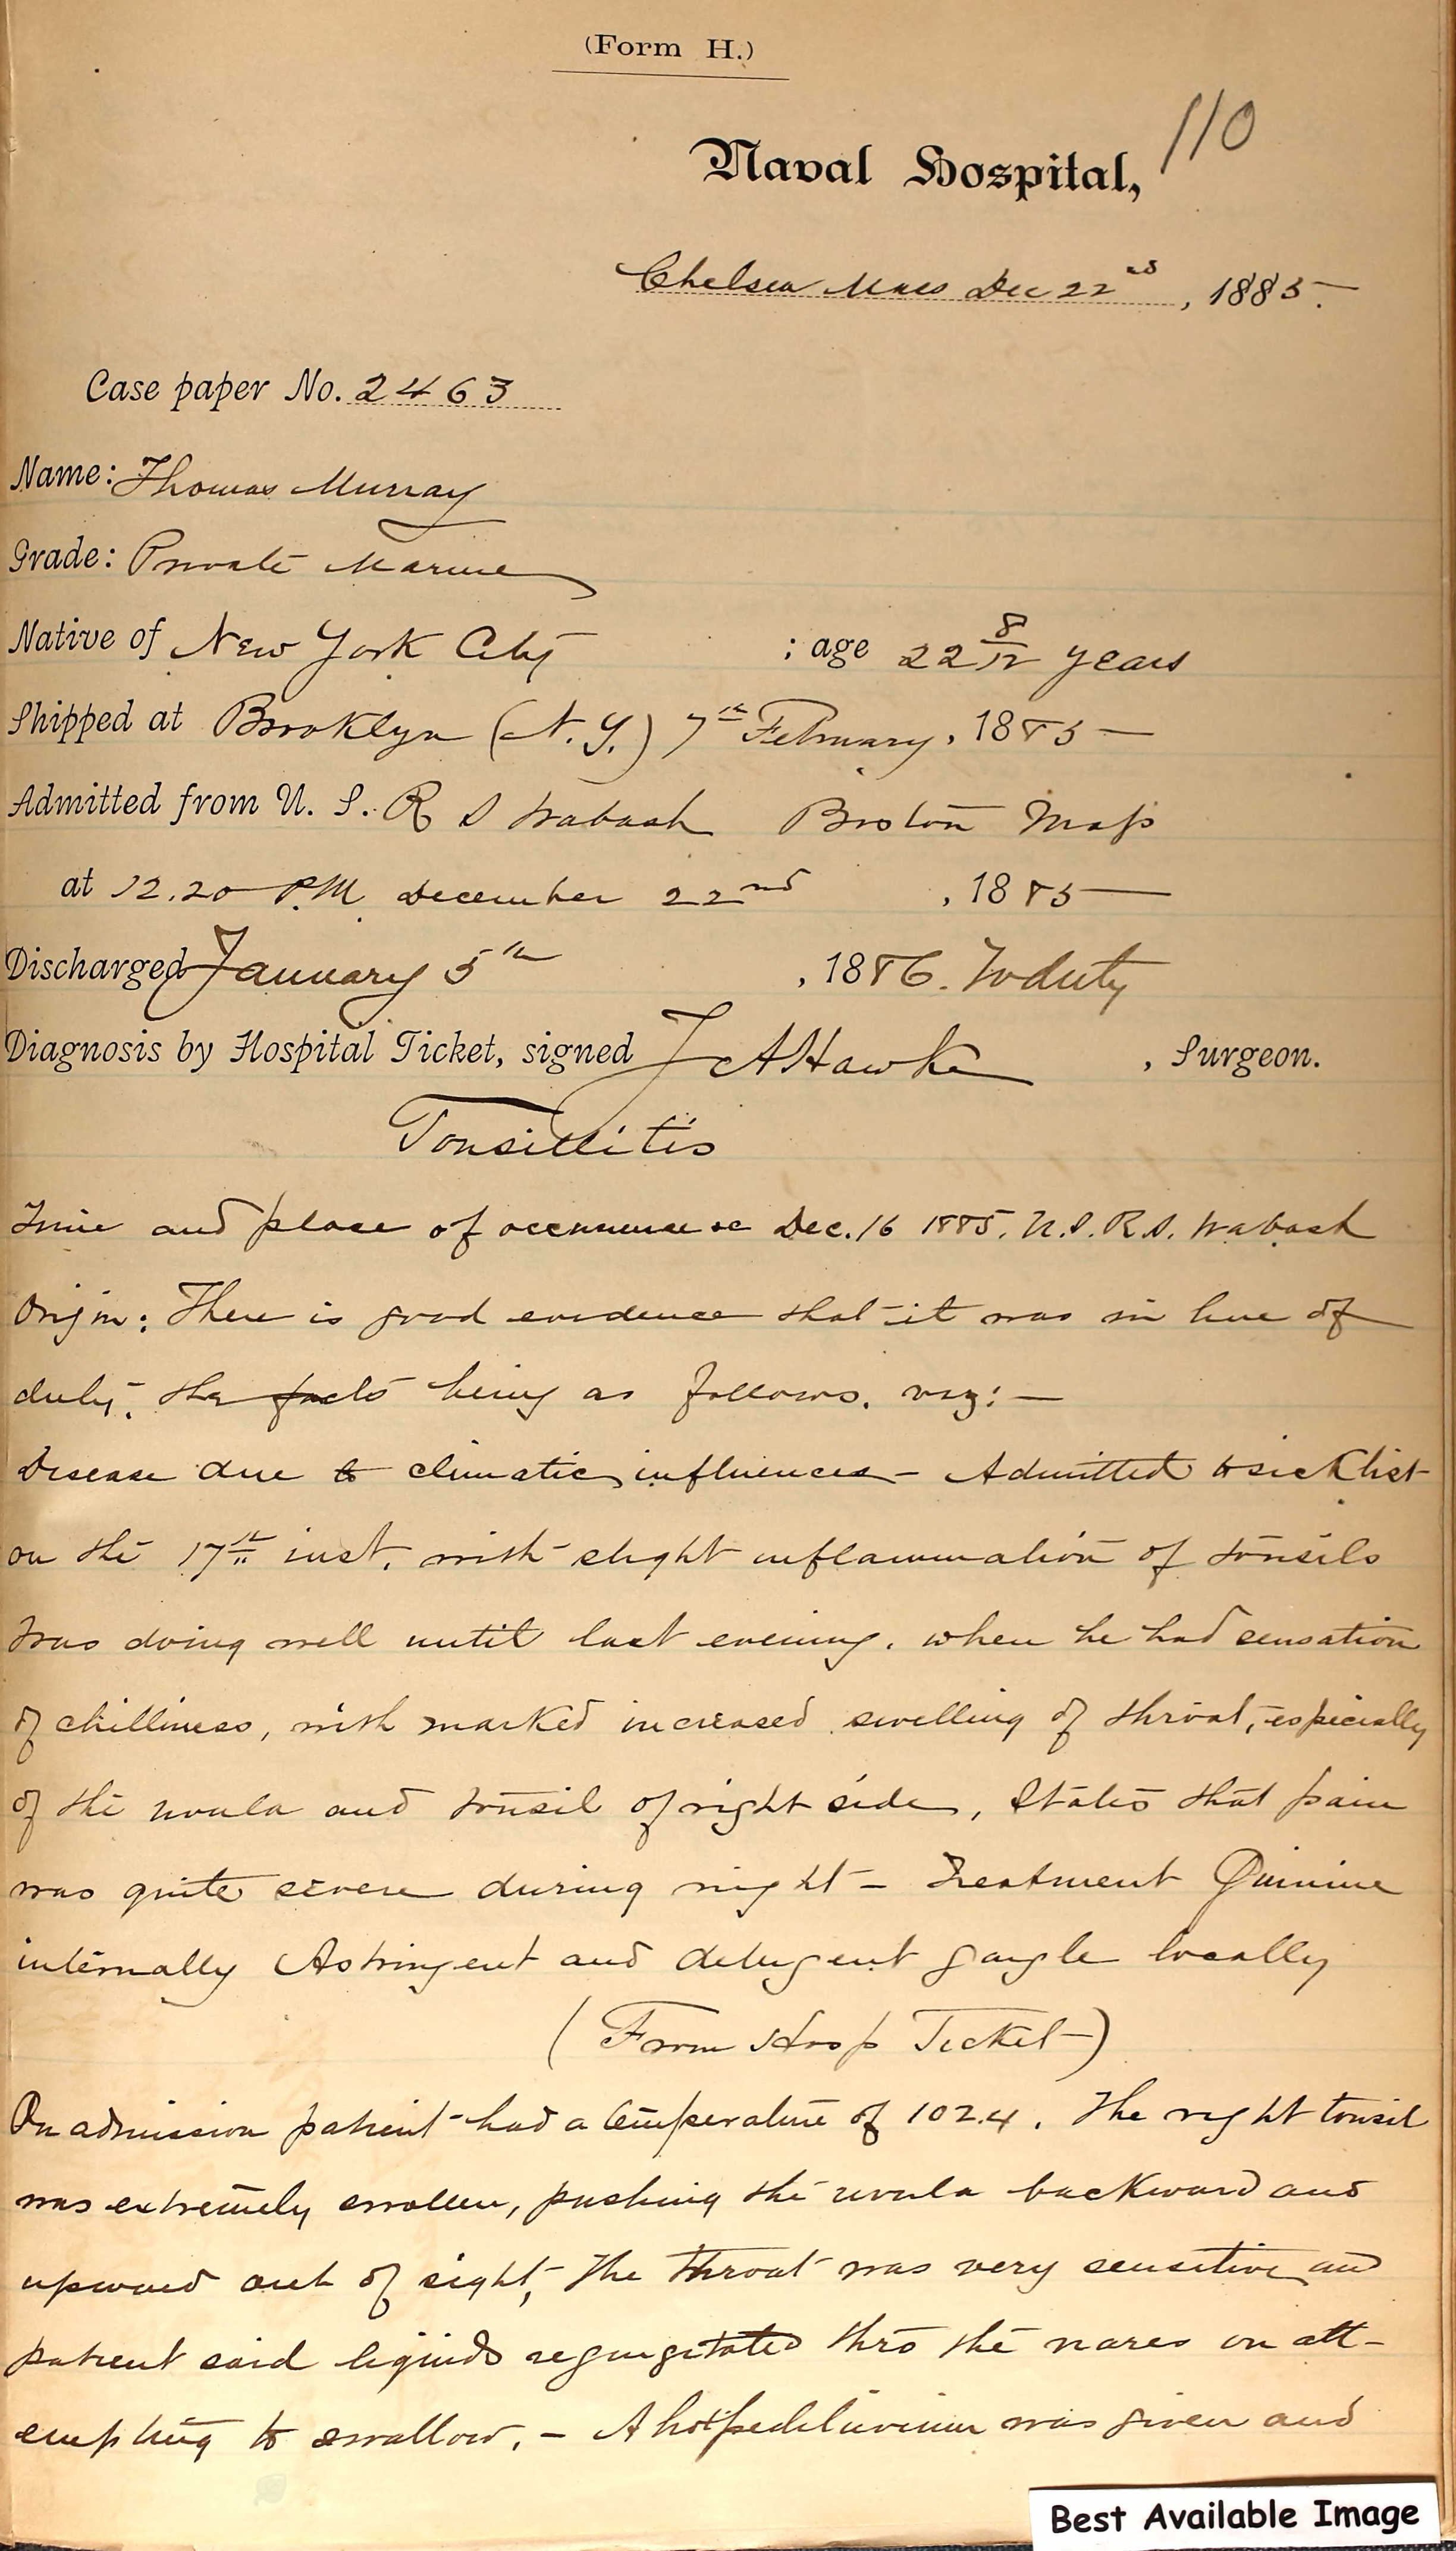 (Form H.)
110
Naval Hospital,
Chelsea Mass Dec 22nd, 1885.
Case paper No. 2463
Name: Thomas Murray
Grade: Private Marine
Native of New York City ; age 22 8/12 years
Shipped at Brooklyn (N.Y.) 7th February, 1885
Admitted from U. S. R S Wabash Boston Mass
at 12.20 P.M. December 22nd, 1885
Discharged January 5th, 1886. To duty
Diagnosis by Hospital Ticket, signed J A Hawke, Surgeon.
Tonsillitis
Time and place of occurrence Dec. 16 1885. U.S.R.S. Wabash
Origin: There is good evidence that it was in line of
duty, the facts being as follows. viz: —
Disease due to climatic influences – Admitted to sick list
on the 17th inst. with slight inflammation of tonsils
Was doing well until last evening, when he had sensation
of chilliness, with marked increased swelling of throat, especially
of the uvula and tonsil of right side, States that pain
was quite severe during night – Treatment Quinine
internally Astringent and detergent gargle locally
(From Hosp Ticket)
On admission patient had a temperature of 102.4. The right tonsil
was extremely swollen, pushing the uvula backward and
upward out of sight, The throat was very sensitive and
patient said liquids regurgitated thro the nares on att-
empting to swallow. – A hot pediluvium was given and
Best Available Image